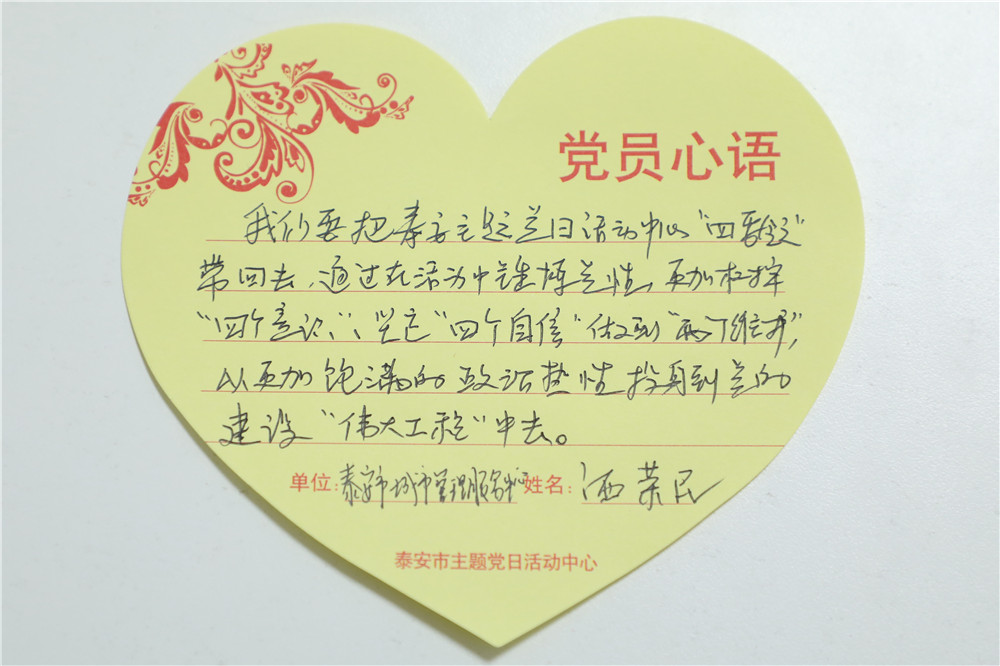 党员心语
我们要把泰安主题党日活动中心"四张"
带回去,通过在活动中锤炼党性,更加树牢
"四个意识"、坚定"四个自信"做到"两个维护",
以更加饱满的政治热性投身到党的
建设"伟大工程"中去。
单位:泰安市城市管理服务中心 姓名:洒荣民
泰安市主题党日活动中心